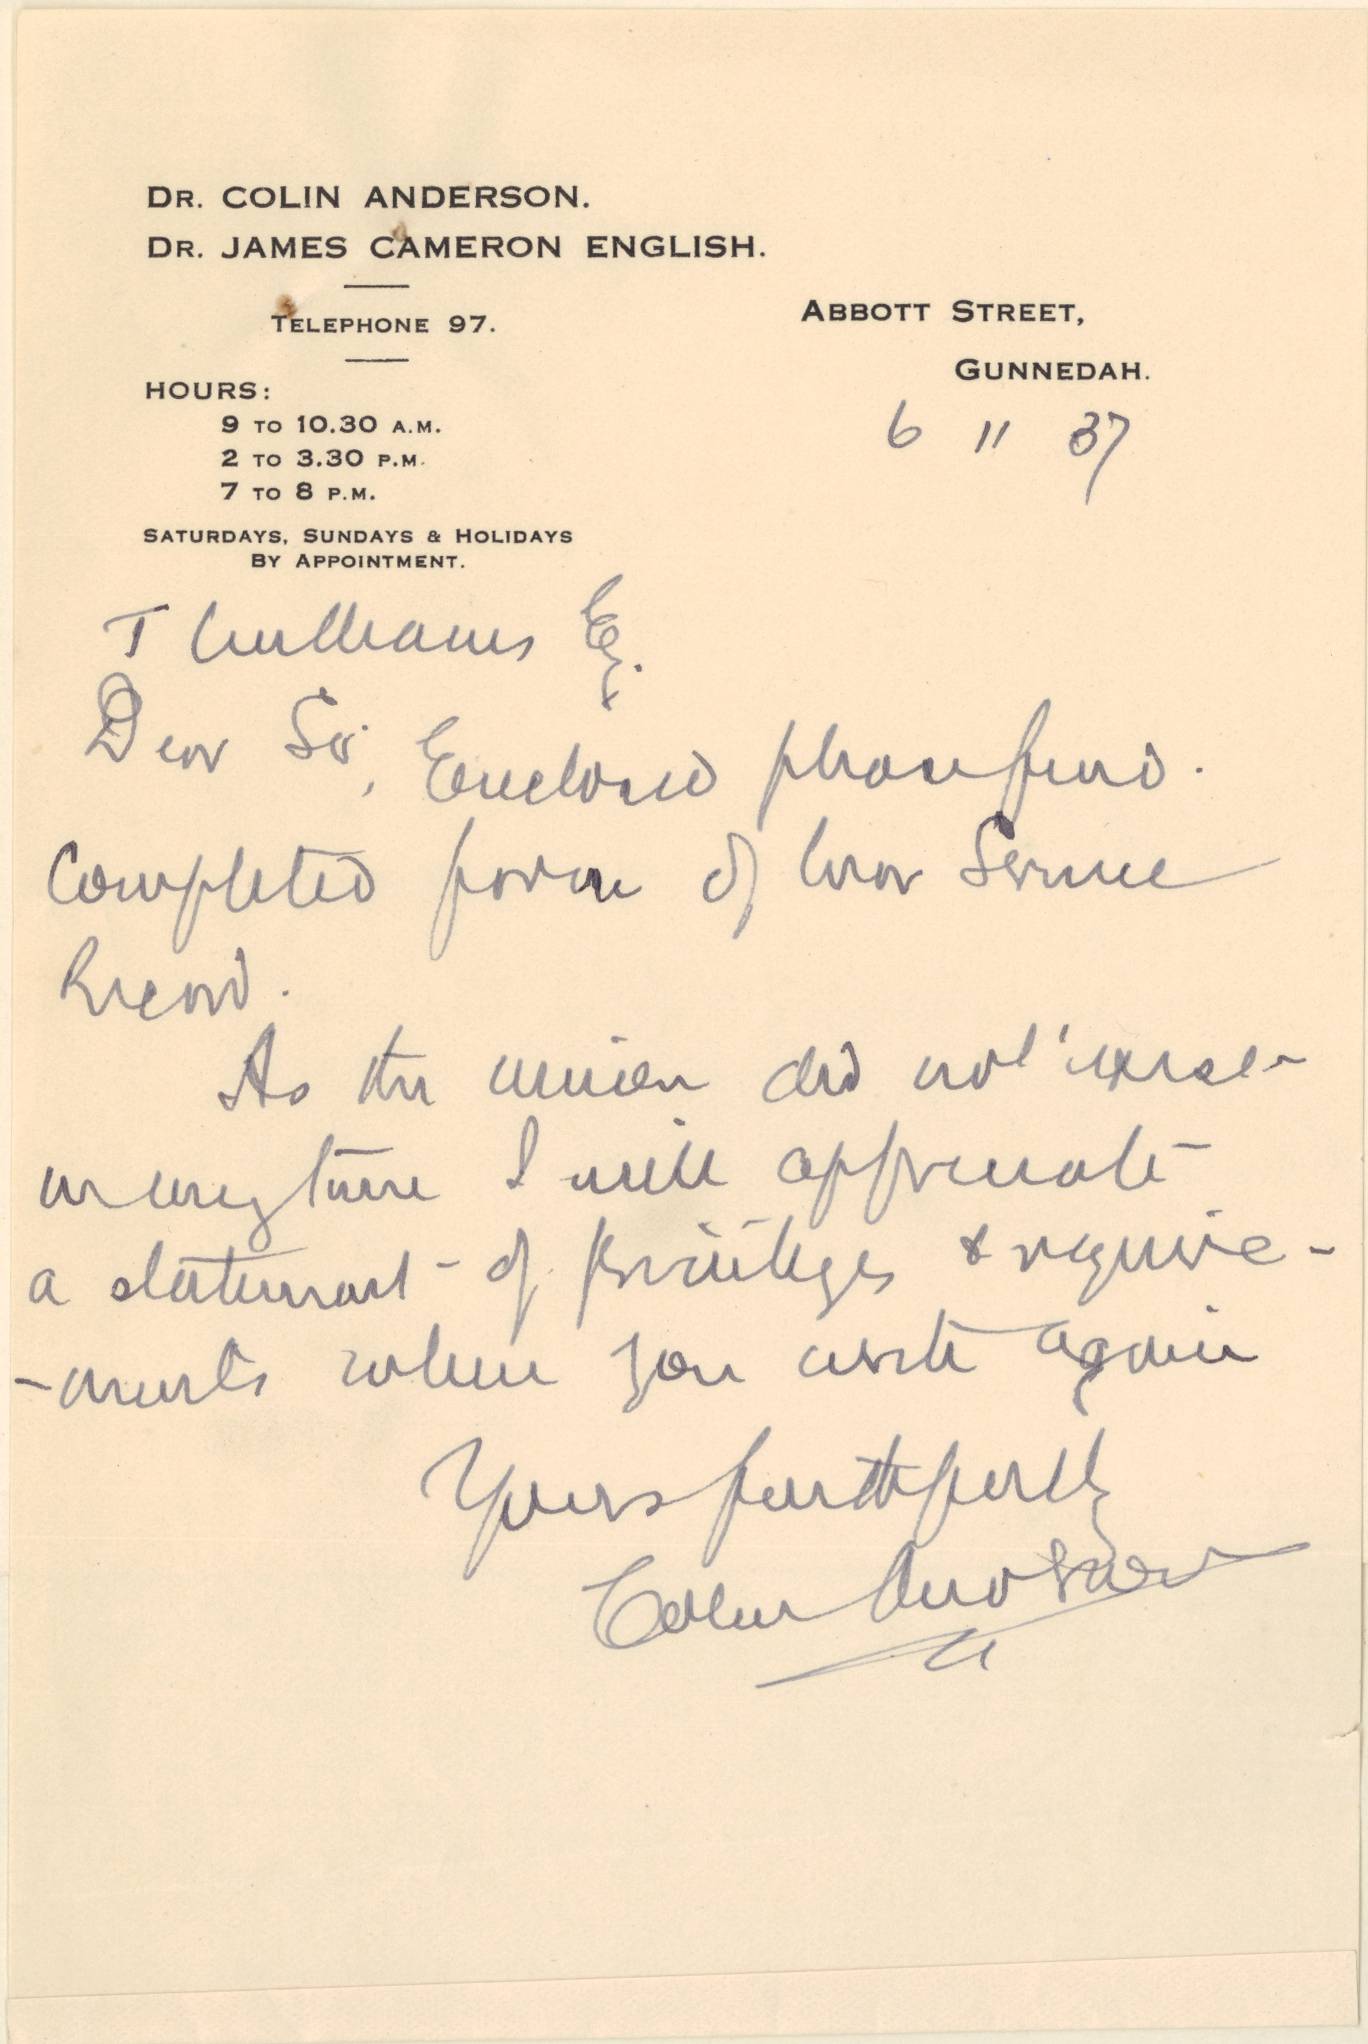 DR. COLIN ANDERSON.
DR. JAMES CAMERON ENGLISH.
TELEPHONE 97.
ABBOTT STREET,
GUNNEDAH.
HOURS:
9 TO 10.30 A.M.
2 TO 3.30 P.M.
7 TO 8 P.M.
SATURDAYS, SUNDAYS & HOLIDAYS
BY APPOINTMENT.
6 11 37
T Williams Esq.
Dear Sir, Enclosed please find.
Completed form of War Service
Record.
As the union did not exist
in my time I will appreciate
a statement of privileges & require-
-ments when you write again
Yours faithfully
Colin Anderson